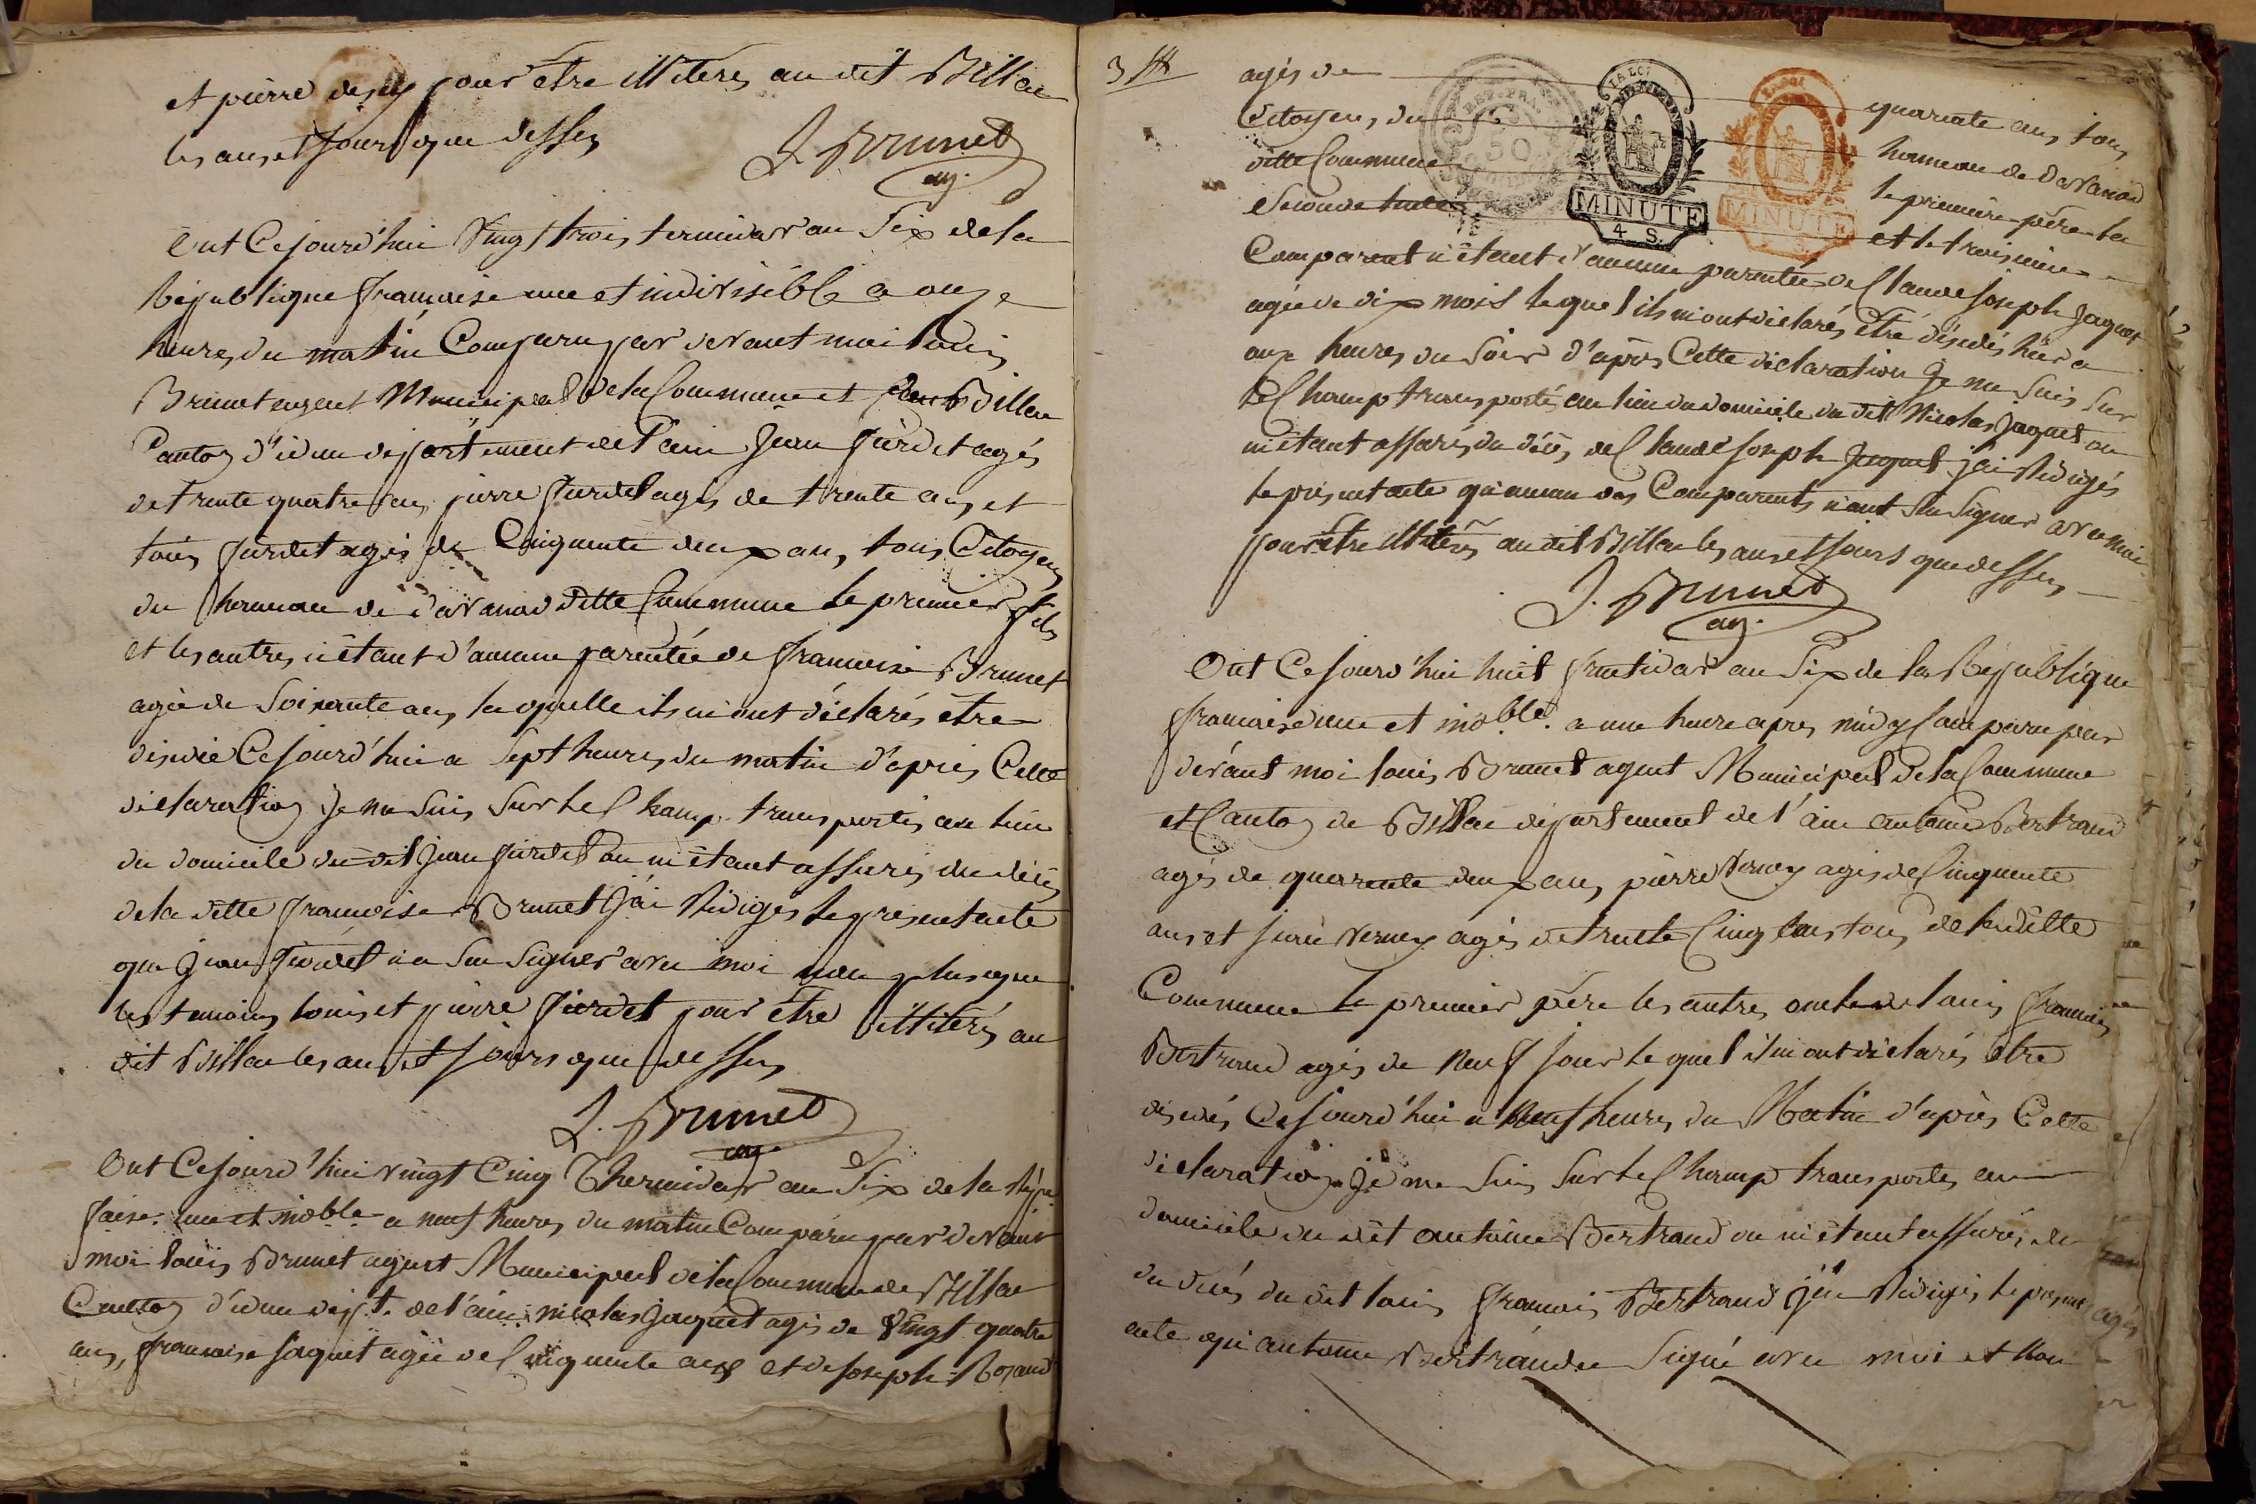 et pierre pour être illiterés au dit Billiat
les ans et jours que dessus
J. Brunet
ag.
Ont Cejourd'hui Vingt trois termidor an Six de la
République françoise une et indivisible a onze
heures du matin Comparu par devant moi Louis
Brunet agent Municipal de la Commune et Billiat
Canton d'idem département de l'ain Jean jurdet agés
de trente quatre ans, pierre jurdet agés de trente ans, et
Louis jurdet agés de Cinquente deux ans, tous Citoyens
du hameau de davanod ditte Commune le premier fils
et les autres n'étant d'aucune parentée de francoise Brunet
agée de Soixante ans, la quelle ils m'ont déclarés être
désidée Cejourd'hui a Sept heures du matin d'après Cette
déclaration Je me Suis Sur le Champ transportés au lieu
du domicile du dit Jean jurdet ou m'étant assurés du décès
de la ditte francoise Brunet J'ai Rédigés le présent acte
que Jean jurdet n'a Su Signer avec moi non plus que
les temoins Louis et pierre jurdet pour être illiterés au
dit Billiat les ans et jours que dessus
J. Brunet
ag.
Ont Cejourd'hui vingt Cinq Thermidor an Six de la Répu.
faise. une et indble. a neuf heures du matin Comparu par devant
moi Louis Brunet agent Municipal de la Commune de Billiat
Canton d'idem dept. de l'ain, nicolas Jaquet agés de Vingt quatre
ans, francoise jaquet agée de Cinquente ans et de Joseph
3
agés de quarante ans, tous
Citoyens, du hameau de davanod
ditte Commune le premier père la
Seconde et le troisième
Comparant n'étant d'aucune parentée de Claude Joseph Jaquet
agée de dix mois le quel ils m'ont déclarés être désidés hier a
onze heures du Soir d'après Cette déclaration Je me Suis Sur
le Champ transportés au lieu du domicile du dit Nicolas Jaquet ou
m'étant assurés du décès de Claude Joseph Jaquet j'ai Rédigés
le présent acte qu'aucun des Comparants n'ont Su Signer avec moi
pour être illiterés au dit Billiat les ans et jours que dessus
J. Brunet
ag.
REP. FRA.
50
LA LOI
MINUTE
4 S.
LA LOI
MINUTE
S.
Ont Cejourd'hui huit fructidor an Six de la République
francaise une et indble. a une heure apres midy Comparu par
dévant moi Louis Brunet agent Municipal de la Commune
et Canton de Billiat département de l'ain antoine Bertrand
agés de quarente deux ans, pierre Verney agés de Cinquente
ans et Verney agés de trente Cinq ans tous de la ditte
Commune le premier père les autres oncle de Louis francois
Bertrand agés de neuf jour le quel ils m'ont déclarés être
désidés Cejourd'hui a neuf heures du Matin d'après Cette
déclaration Je me Suis Sur le Champ transportés au
domicile du dit antoine Bertrand ou m'étant assurés de
du décés du dit Louis francois Bertrand j'ai Rédigés le présent
acte qu'antoine Bertrand a Signé avec moi et non